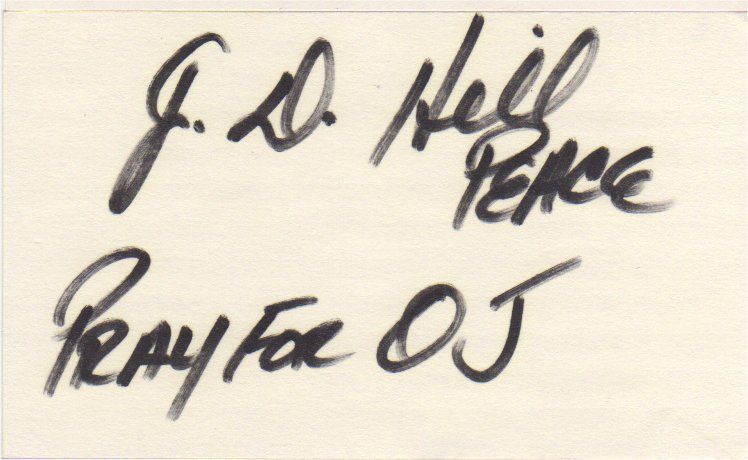 J. D. Hill
PEACE
PRAY FOR OJ